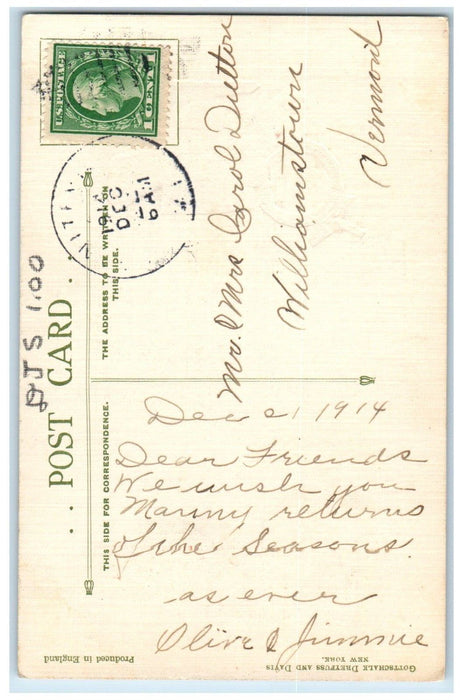 U.S. POSTAGE
1 CENT
DEC
6 AM
DJS 1.00
POST CARD
THE ADDRESS TO BE WRITTEN ON
THIS SIDE.
Mr. & Mrs Carol Dutton
Williamstown
Vermont
THIS SIDE FOR CORRESPONDENCE.
Dec 21 1914
Dear Friends
We wish you
Manny returns
of the Seasons.
as ever
Olive & Jimmie
Produced in England
GOTTSCHALK DREYFUSS AND DAVIS
NEW YORK.